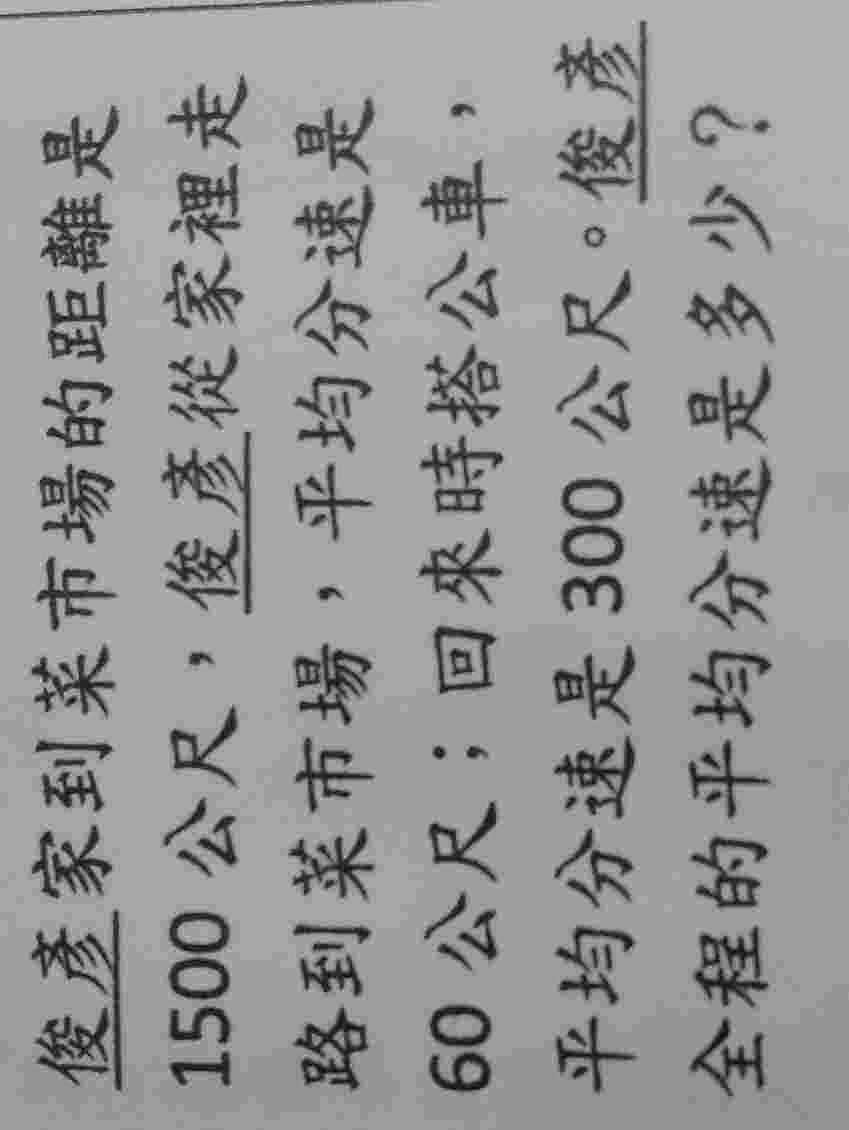 俊彥家到菜市場的距離是
1500 公尺，俊彥從家裡走
路到菜市場，平均分速是
60 公尺；回來時搭公車，
平均分速是 300 公尺。俊彥
全程的平均分速是多少？